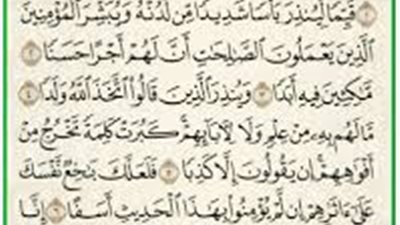 قَيِّمًا لِّيُنذِرَ بَأْسًا شَدِيدًا مِّن لَّدُنْهُ وَيُبَشِّرَ الْمُؤْمِنِينَ
الَّذِينَ يَعْمَلُونَ الصَّٰلِحَٰتِ أَنَّ لَهُمْ أَجْرًا حَسَنًا ۝٢
مَّٰكِثِينَ فِيهِ أَبَدًا ۝٣ وَيُنذِرَ الَّذِينَ قَالُوا۟ اتَّخَذَ اللَّهُ وَلَدًا ۝٤
مَّا لَهُم بِهِۦ مِنْ عِلْمٍ وَلَا لِءَابَآئِهِمْ ۚ كَبُرَتْ كَلِمَةً تَخْرُجُ مِنْ
أَفْوَٰهِهِمْ ۚ إِن يَقُولُونَ إِلَّا كَذِبًا ۝٥ فَلَعَلَّكَ بَٰخِعٌ نَّفْسَكَ
عَلَىٰٓ ءَاثَٰرِهِمْ إِن لَّمْ يُؤْمِنُوا۟ بِهَٰذَا الْحَدِيثِ أَسَفًا ۝٦ إِنَّا